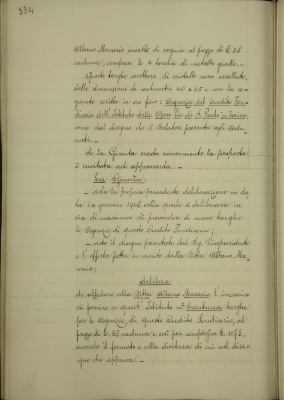 334
Albano Macario accettò di eseguire al prezzo di £. 38
caduna, comprese le 4 borchie di metallo giallo. -
Queste targhe sarebbero di cristallo nero
delle dimensioni di centimetri 40 x 25 e con la
scritta in oro fino: Agenzia del Credito Fon-
diario dell'Istituto delle Opere Pie di S. Paolo in Torino,
come dal disegno che il Relatore presenta agli Adu-
nati. -
Se la Giunta crede conveniente la proposta
è invitata ad approvarla. -
La Giunta
- vista la propria precedente deliberazione in da-
ta gennaio colla quale si deliberava in
via di massima di provvedere di nuove targhe
le Agenzie di questo Credito Fondiario;
- visto il disegno presentato dal Sig. Vicepresidente
e l'offerta fatta in merito dalla Ditta Albano Ma-
cario;
delibera
di affidare alla Ditta Albano Macario l'incarico
di fornire a quest'Istituto n.° targhe
per le Agenzie di questo Credito Fondiario, al
prezzo di £. 38 caduna e così per complessive £.
secondo il formato e colla dicitura di cui nel dise-
gno che approva. -